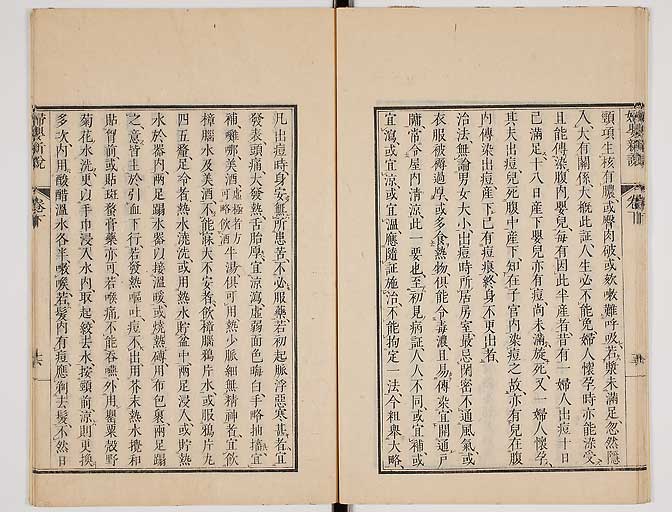 頸項生核有膿或臀肉破或欬嗽難呼吸若漿未滿足忽然隱
人大有關係大概此証人生必不能免婦人懷孕時亦能染受
且能傳染腹內嬰兒每有因此半產者昔有一婦人出痘十日
已滿足十八日產下嬰兒亦有痘尚未滿旋死又一婦人懷孕
其夫出痘兒死腹中產下知在子宮內染痘之故亦有兒在腹
內傳染出痘產下已有痘痕終身不更出者
治法無論男女大小出痘時所居房室最忌閉密不通風氣或
衣服被褥過厚或多食熱物俱能令毒浪且易傳染宜開通戶
牖常令屋內清涼此一要也至初見病証人人不同或宜補或
宜瀉或宜涼或宜溫應隨証施治不能拘定一法今粗舉大略
凡出痘時身安無所患苦不必服藥若初起脈浮惡寒甚者宜
發表頭痛大發熱舌胎厚宜涼瀉虛弱面色晦白手略抽搐宜
補雞哪美酒虛極者方可略飲酒牛湯俱可用熱少脈細無精神者宜飲
樟腦水及美酒不能寐大不安者飲樟腦鴉片水或服鴉片丸
四五釐足冷者熱水澆洗或用熱水貯盆中兩足浸入或貯熱
水於器內兩足蹋水器以接溫暖或燒熱磚用布包裹兩足蹋
之意皆主於引血下行若發熱嘔吐痘不出用芥末熱水攪和
貼胃前或貼斑蝥膏藥亦可若喉痛不能吞嚥外用罌粟殼野
菊花水洗更以手巾浸入水內取起絞去水按頸前涼則更換
多次內用酸醋溫水各半嗽喉若髮內有痘應剃去髮不然日
婦嬰新說
卷下